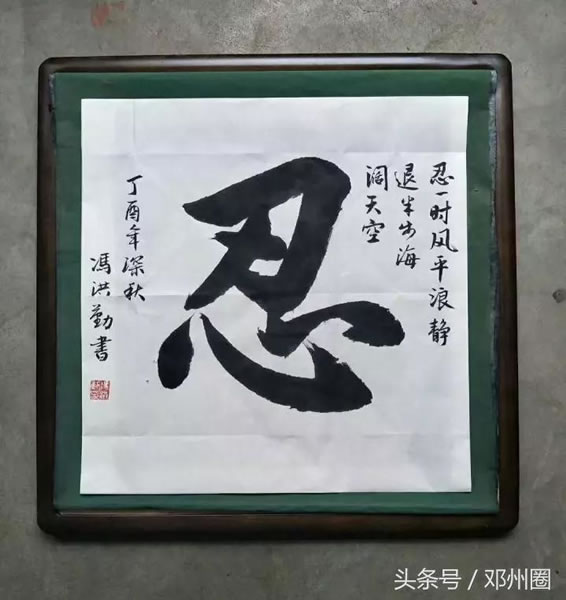 忍一时风平浪静
退半步海
阔天空
忍
丁酉年深秋
馮洪勤書
头条号 / 邓州圈